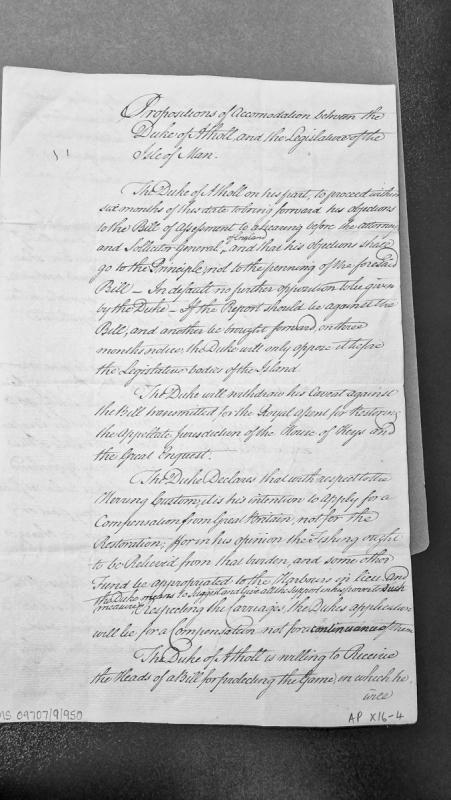 Propositions of Accomodation between the
Duke of Atholl, and the Legislature of the
Isle of Man.
The Duke of Atholl on his part, to proceed within
six months of this date to bring forward his objections
to the Bill of Assessment to a hearing before the Attorney
and Sollicitor General of England, and that his objections shall
go to the Principle, not to the penning of the foresaid
Bill — In default no further opposition to be given
by the Duke — If the Report should be against the
Bill, and another be brought forward, on three
months notice, the Duke will only oppose it before
the Legislative bodies of the Island.
The Duke will withdraw his Caveat against
the Bill transmitted for the Royal Assent for Restoring
the Appellate Jurisdiction of the House of Keys and
the Great Enquest.
The Duke Declares that with respect to the
Herring Custom, it is his intention to apply for a
Compensation from Great Britain, not for the
Restoration; ffor in his opinion the Fishing ought
to be Relieved from that burden, and some other
Fund be appropriated to the Harbours in lieu and
the Duke means to suggest and give all the support in his power to such
measures
Respecting the Carriages, the Dukes application
will be for a Compensation not for a continuance of them
The Duke of Atholl is willing to Receive
the Heads of a Bill for protecting the Game, in which he
will
MS 09707/9/950
AP X16-4